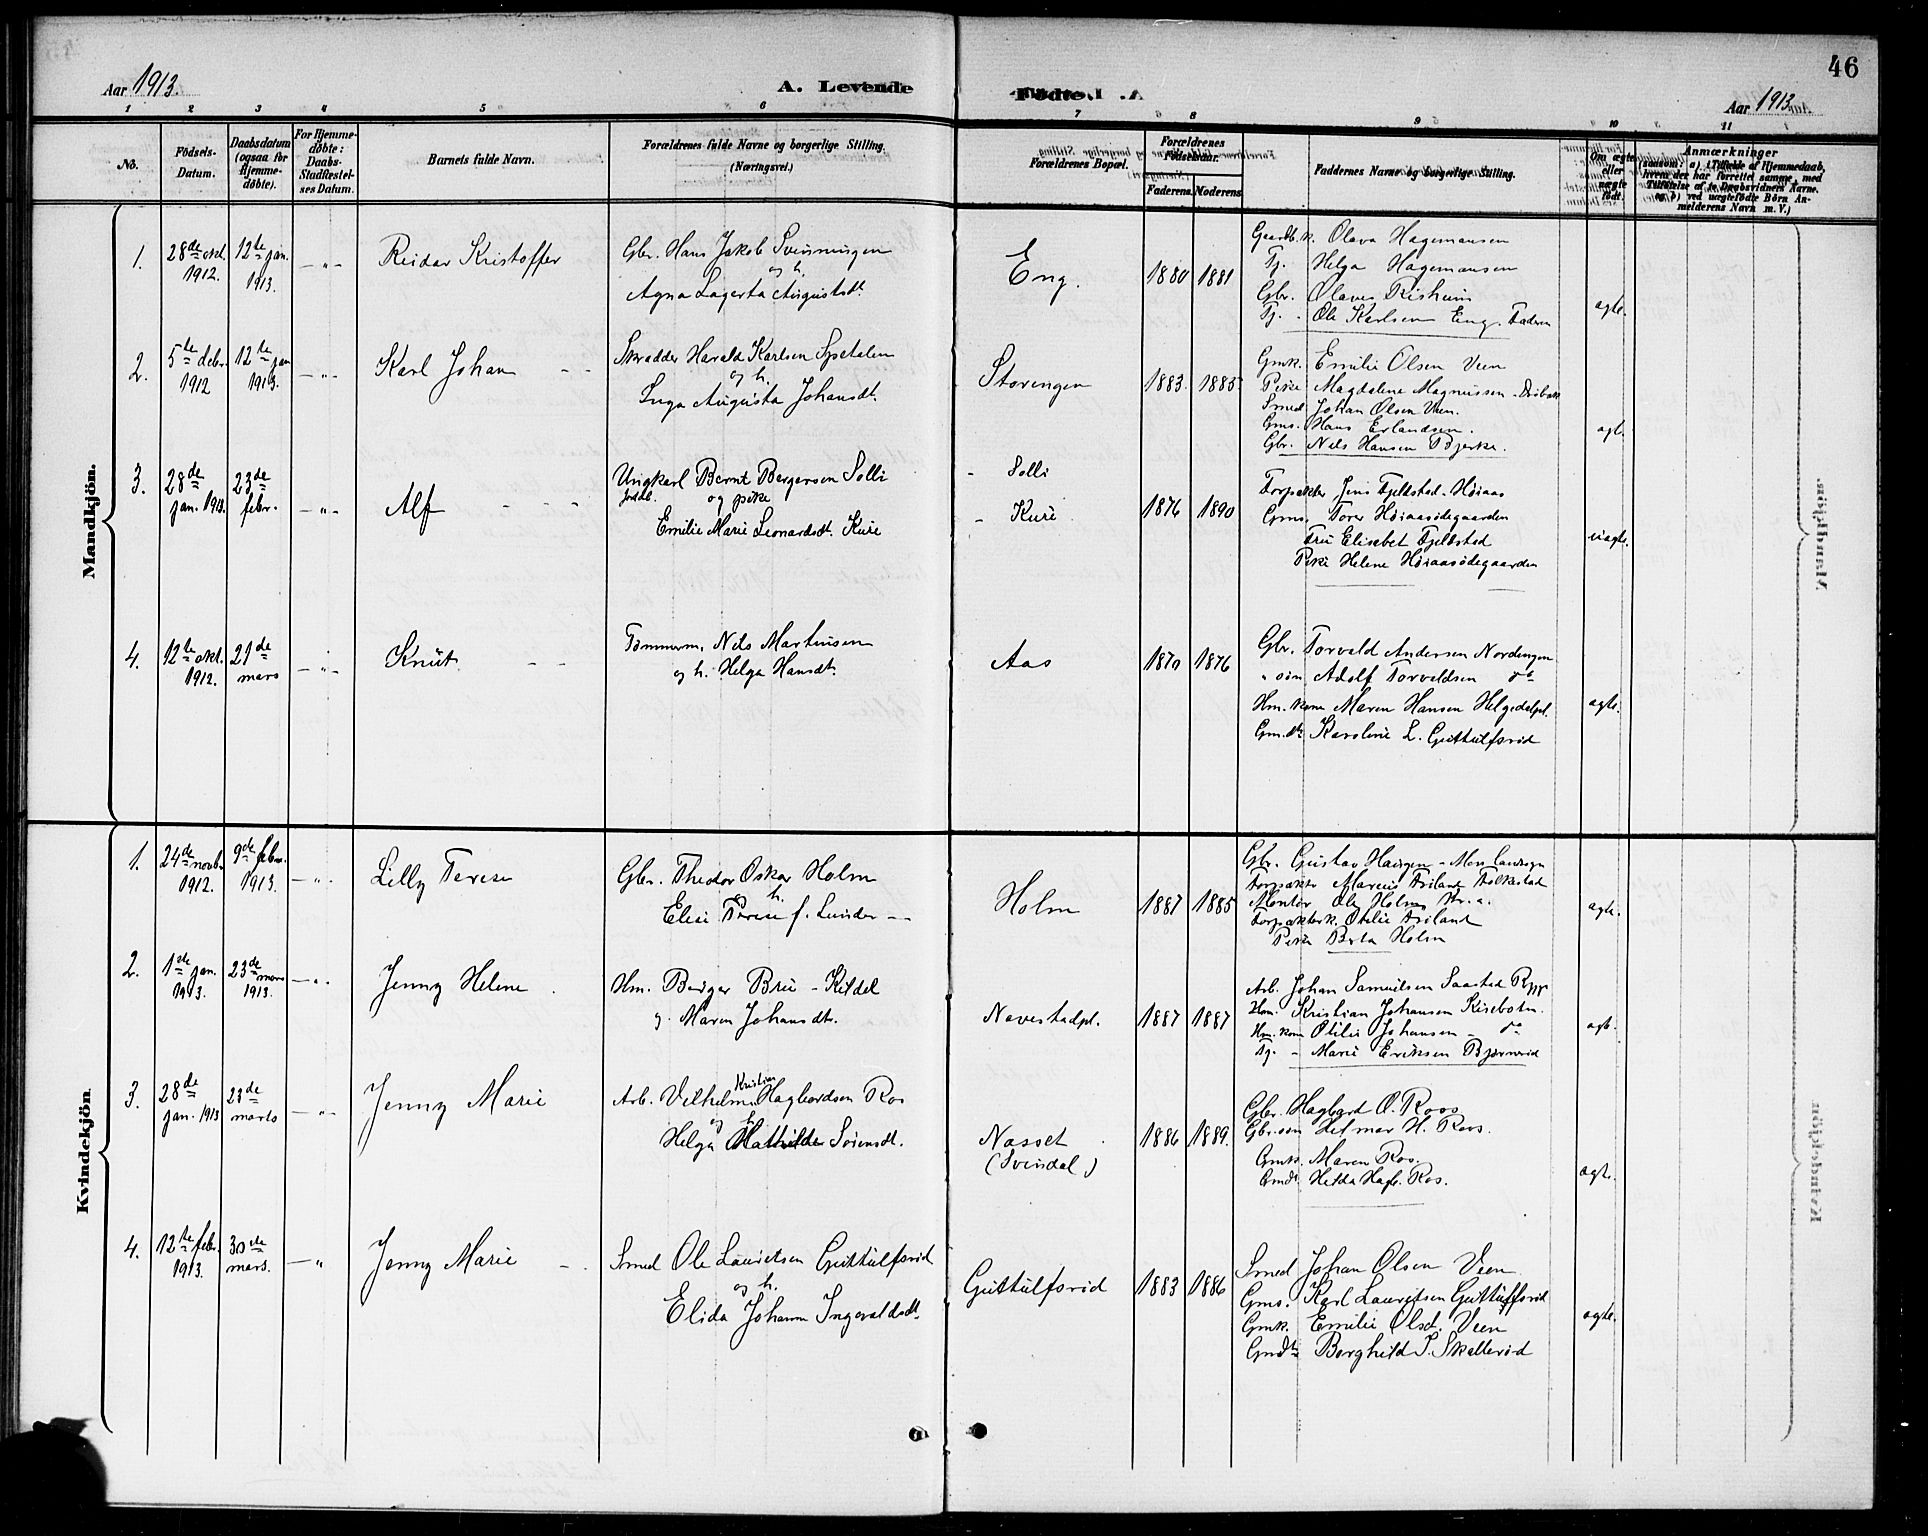 46
Aar 1913.
A. Levende
Fødte.
Aar 1913
1 2 3 4 5 6 7 8 9 10 11
No.
Fødsels-Datum.
Daabsdatum (ogsaa for Hjemme-døbte).
For Hjemme-døbte: Daabs-Stadfæstel-ses Datum.
Barnets fulde Navn.
Forældrenes fulde Navne og borgerlige Stilling.
(Næringsvei.)
Forældrenes Bopæl.
Forældrenes Fødselsaar.
Faderens. Moderens.
Faddernes Navne og borgerlige Stilling.
Om ægte eller uægte født.
Anmærkninger
Mandkjøn.
1. 28de okt. 1912. 12te jan. 1913. — " —
Reidar Kristoffer
Gbr. Hans Jakob Svenningsen
og h.
Agna Lagerta Augustsdt.
Eng. 1880 1881
Gaardb.k. Olava Hagemansen
Tj. Helga Hagemansen
Gbr. Olaves Risheim
Tj. Ole Karlsen Eng. Faderen
ægte.
2. 5te debr. 1912 12te jan 1913. — " —
Karl Johan
Skrædder Harald Karlsen Spetalen
og h.
Inga Augusta Johansdt.
Storengen 1883. 1885
Gmk. Emilie Olsen Veen
Pike Magdalene Magnussen - Drøbak
Smed Johan Olsen Veen.
Gms. Hans Erlandsen.
Gbr. Nils Hansen Bjerke.
ægt.
3. 28de jan. 1913. 23de febr. — " —
Alf
Ungkarl Bernt Bergersen Solli
og pike
Emilie Marie Leonardsdt. Kure
- Solli
- Kure 1876 1890
Forpakter Jens Fjeldstad - Høiaas
Gms. Torer Høiaasødegaarden
Fru Elisabet Fjeldstad
Pike Helene Høiaasødegaarden
uægte.
4. 12te okt. 1912. 21de mars — " —
Knut
Tømmerm. Nils Martinsen
og h. Helga Hansdt.
Aas 1870 1876
Gbr. Torvald Andersen Nordengen
" søn Adolf Torvaldsen do
Hm. kone Maren Hansen Helgedalpl.
Gm.dt. Karoline L. Guttulfsrød
ægte.
Kvindekjön
1. 24de novbr. 1912. 9de febr. 1913. — " —
Lilly Terese
Gbr. Theodor Oskar Holm
h.
Elise Terese f. Lunder
Holm 1887 1885
Gbr. Gustav Haugen - Moss landsogn
Forpakter Marius Friland Folkestad
Montør Ole Holm Kr.a.
Forpakterk. Otilie Friland
Pike Berta Holm
ægte.
2. 1de jan. 1913. 23de mars 1913. — " —
Jenny Helene
Hm. Birger Bru - Kildal
g. Maren Johansdt.
Navestadpl. 1887 1887
Arb. Johan Samuelsen Saastad Rygge
Hm. Kristian Johansen Kisebotn.
Hm. kone Otilie Johansen - do
Tj. - Marie Eriksen Bjørnerød
ægt.
3. 28de jan. 1913 23de marts — " —
Jenny Marie
Kristian
Arb. Vilhelm Hagbardsen Ros
og h.
Helga Mathilde Sørensdt.
Næsset
(Svindal) 1886 1889.
Gbr. Hagbart O. Roos
Gbr. søn Hilmar H. Roos.
Gmk. Maren Ros.
Gmdt. Hilda Hagb. Ros.
ægte.
4. 12te febr. 1913. 30de mars. — "
Jenny Marie
Smed Ole Lauritsen Guttulfsrød
og h.
Elida Johanne Ingvaldsdt.
Guttulfsrød 1883 1886
Smed Johan Olsen Veen
Gms. Karl Lauritsen Guttulfsrød
Gmk. Emilie Olsd. Veen
Gmdt. Borghild P. Skallerød
ægte.